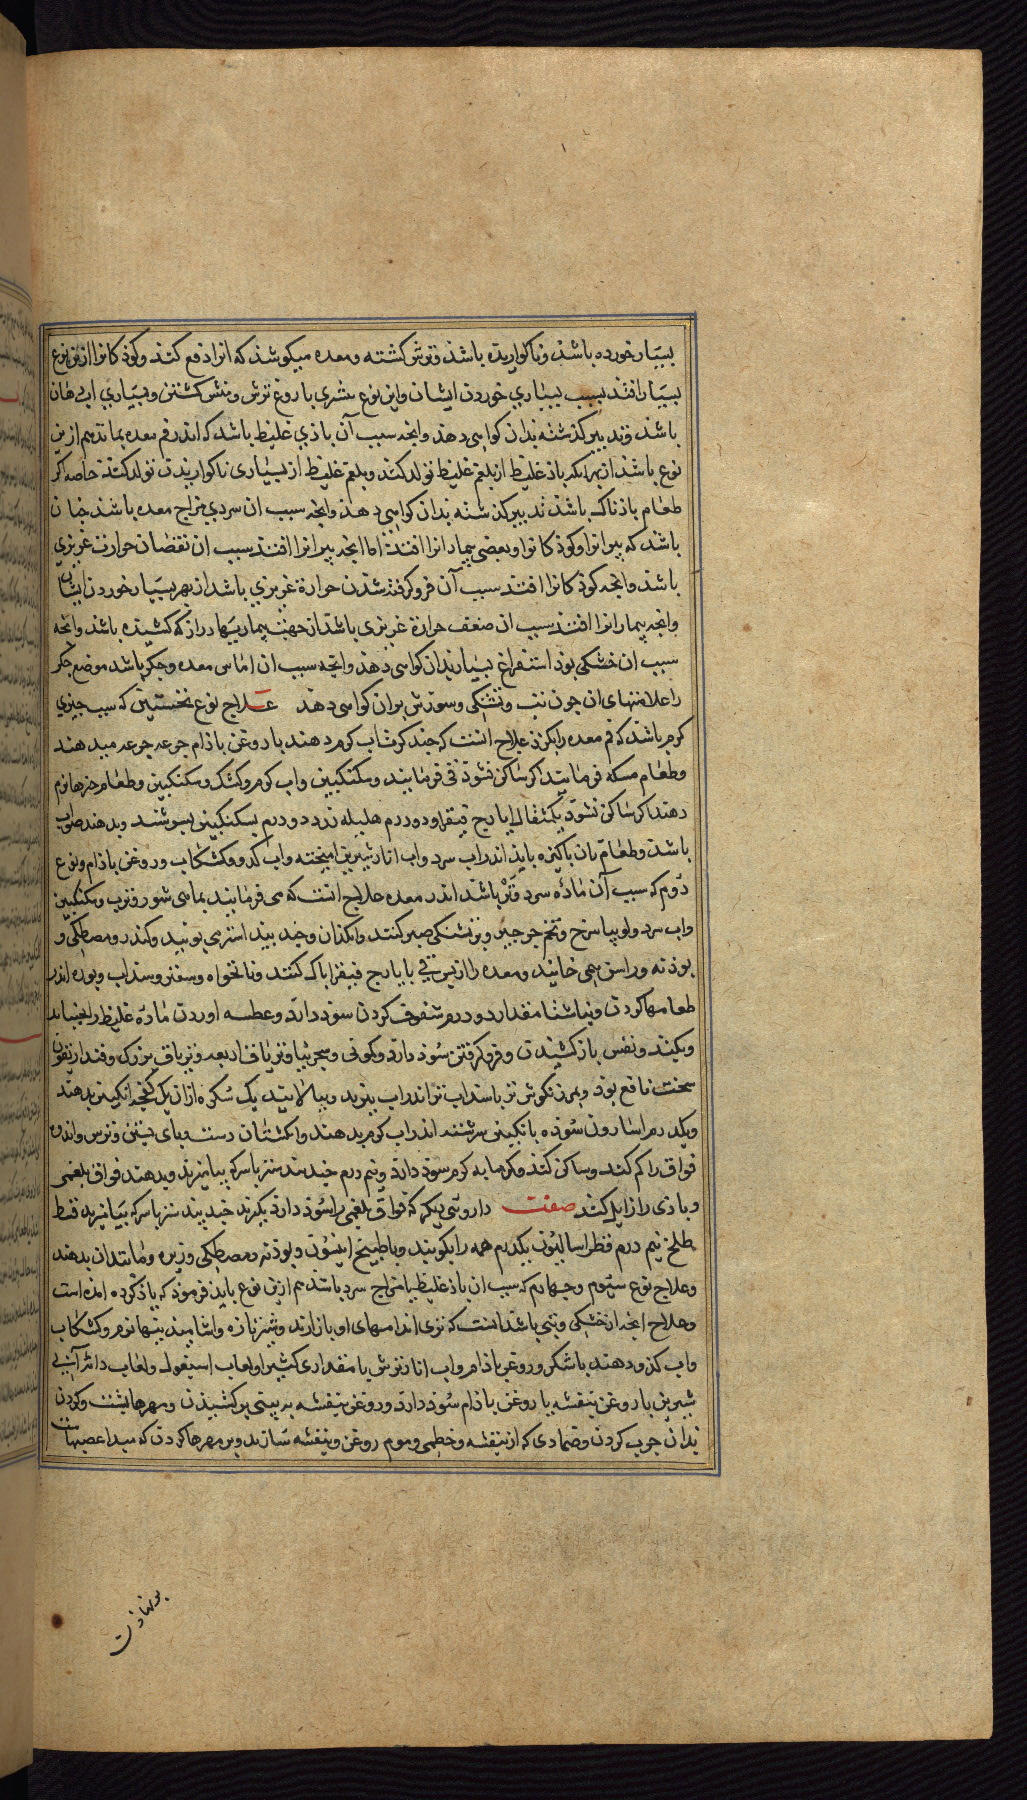 بسیار خورده باشد و ناکواریده باشد و ترش کشته و معده میکوشد که انرا دفع کند و کوذکانرا ازین نوع
بسیار افتد بسبب بسیاری خوردن ایشان و این نوع بشری با روغ ترش و منش کشتن و بسیاری
باشد و تدبیر کذشته بدان کواهی دهد و انچه سبب آن باذی غلیظ باشد که اندر فم معده بماند هم ازین
نوع باشد از بهر انکه باذ غلیظ از بلغم غلیظ تولد کند و بلغم غلیظ از بسیاری ناکواریدن تولد کند خاصه اکر
طعام باذناک باشد تدبیر کذشته بدان کواهی دهد و انچه سبب ان سردی مزاج معده باشد چنان
باشد که پیرانرا و کوذکانرا و بعضی بیمارانرا افتد اما انچه پیرانرا افتد سبب ان نقصان حرارت غریزی
باشد و انچه کوذکانرا افتد سبب آن فرو کرفته شدن حرارة غریزی باشد از بهر بسیار خوردن ایشان
و انچه بیمارانرا افتد سبب ان ضعف حرارة غریزی باشد از جهت بیماریهای دراز که کشیده باشد و انچه
سبب ان خشکی بوذ استفراغ بسیار بدان کواهی دهد و انچه سبب ان اماس معده و جکر باشد موضع جکر
را علامتهای ان چون تب و تشنکی و سوزش بران کواهی دهد علاج نوع نخستین که سبب چیزی
کرم باشد که فم معده را بکزد علاج انست که چند کرت اب کرم دهند با روغن باذام جرعه جرعه میدهند
و طعام مسکه فرمایند اکر ساکن نشود قی فرمایند و سکنکبین واب کرم و کشک و سکنکبین و طعام
دهند اکر ساکن نشود یکمثقال ایارج فیقرا و دو درم هلیله زرد و درم بسکنکبین بسرشند و بدهند صواب
باشد و طعام نان پاکیزه باید اندر اب سرد واب انار شیرین امیخته واب کدو و کشکاب و روغن باذام و نوع
دوم که سبب آن ماده سرد و تر باشد اندر معده علاج انست که می فرمایند بماهی شور و ترب و سکنکبین
واب سرد و لوبیا سرخ و تخم جرجیر و بر تشنکی صبر کنند و انکدان و جند بیدستر می بویند و کندر و مصطکی و
بوذنه و راسن همی خایند و معده را ازین پس قی بایارج فیقرا پاک کنند و نانخواه و سعتر و سداب و بوره اندر
طعامها کردن و بناشتا مقدار دو درم شفوف کردن سوذ دارد و عطسه اوردن ماده غلیظ را بجنباند
و بکند و نفس باز کشیدن و فرو کرفتن سوذ دارد و کمونی و سجزنیا و تریاق اربعه و تریاق بزرک و قنداریقون
سخت نافع بوذ و بمرزنکوش تر با سداب تر اندراب بپزند و بپالایند یک سکره ازان بکفچه انکبین بدهند
و یکدرم اسارون سوده بانکبین سرشته اندر اب کرم بدهند و انکشتان دست و پای بستن و ترس و اندوه
فواق را کم کند و ساکن کند و کرمابه کرم سوذ دارد و نیم درم جند بیدستر با سرکه بیامیزند و بدهند فواق بلغمی
و باذی را زایل کند صفت داروئی دیکر که فواق بلغمی را سوذ دارد بکیرند جند بیدستر با سرکه بیامیزند قسط
طلخ نیم درم فطراسالیون یکدرم همه را بکوبند و با طبیخ انیسون و پوذنه و مصطکی و زیره و مانند ان بدهند
و علاج نوع سیوم و چهارم که سبب ان باذ غلیظ یا مزاج سرد باشد هم ازین نوع باید فرموذ که یاذ کرده امده است
و علاج انچه از خشکی و تبی باشد انست که تری اندامهای او باز ارند و شیر تازه و اشامیدنیها نرم و کشکاب
واب کدو دهند با شکر و روغن باذام واب انار ترش با مقداری کتیرا و لعاب اسبغول و لعاب دانه آبی
شیرین با روغن بنفشه یا روغن باذام سوذ دارد و روغن بنفشه به بینی بر کشیدن و مهرها پشت و کردن
بدان چرب کردن و ضمادی که از بنفشه و خطمی و موم روغن و بنفشه سازند و بر مهرها کردن که مبدا عصبهاست
بر نهاذن